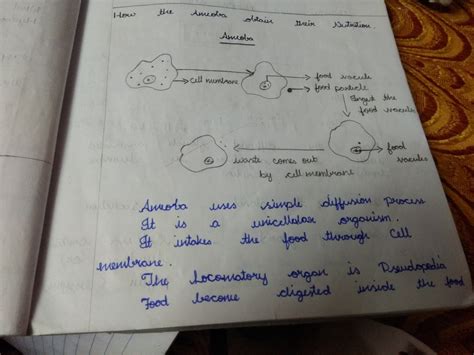 How the Amoeba obtain their Nutrition
Amoeba
cell membrane
food vacuole
food particle
Ingest the
food vacuoles
food
vacuoles
waste comes out
by cell membrane
Amoeba uses simple diffusion process
It is a unicellular organism.
It intakes the food through Cell
membrane.
The locomatory organ is Pseudopodia
Food become digested inside the food